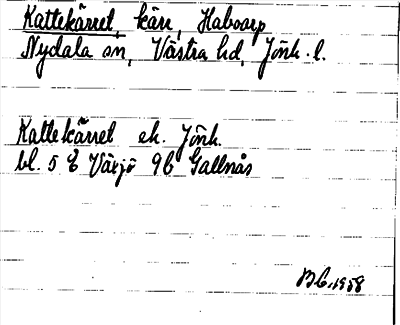 Kattekärret, kärr, Haboarp
Nydala sn, Västra hd, Jönk. l.
Kattekärret ek. Jönk.
bl. 5 E Växjö 9b Gallnås
B.C. 1958